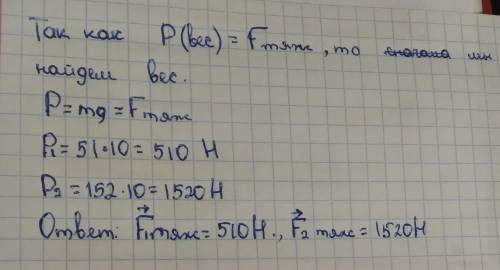 Так как P(вес) = Fтяж, то сначала мы
найдем вес.
P = mg = Fтяж
P₁ = 51·10 = 510 Н
P₂ = 152·10 = 1520Н
Ответ: F₁тяж = 510Н., F₂ тяж = 1520Н